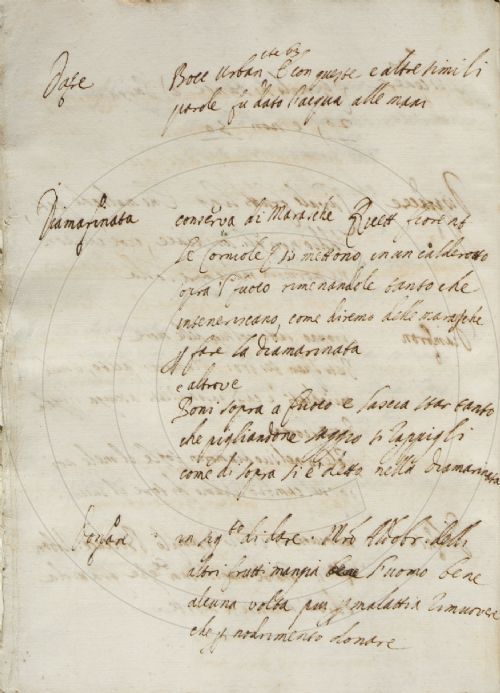 Dare
Bocc Urban cte 63 E con queste e altre simili
parole fu dato l'acqua alle mani
Diamarinata
conserva di Marasche Ricett fiorent
Le Corniole si mettono in un calderotto
sopra l fuoco rimenandole tanto che
inteneriscano, come diremo delle marasche
p fare la diamarinata
e altrove
Poni sopra a fuoco e lascia star tanto
che pigliandone saggio si rappigli
come di sopra si è detto nella diamarinata
Donare
in sig.to di dare. Mro Aldobr. delli
altri frutti mangia bene l'uomo bene
alcuna volta più p malattia rimuovere
che p nodrimento donare